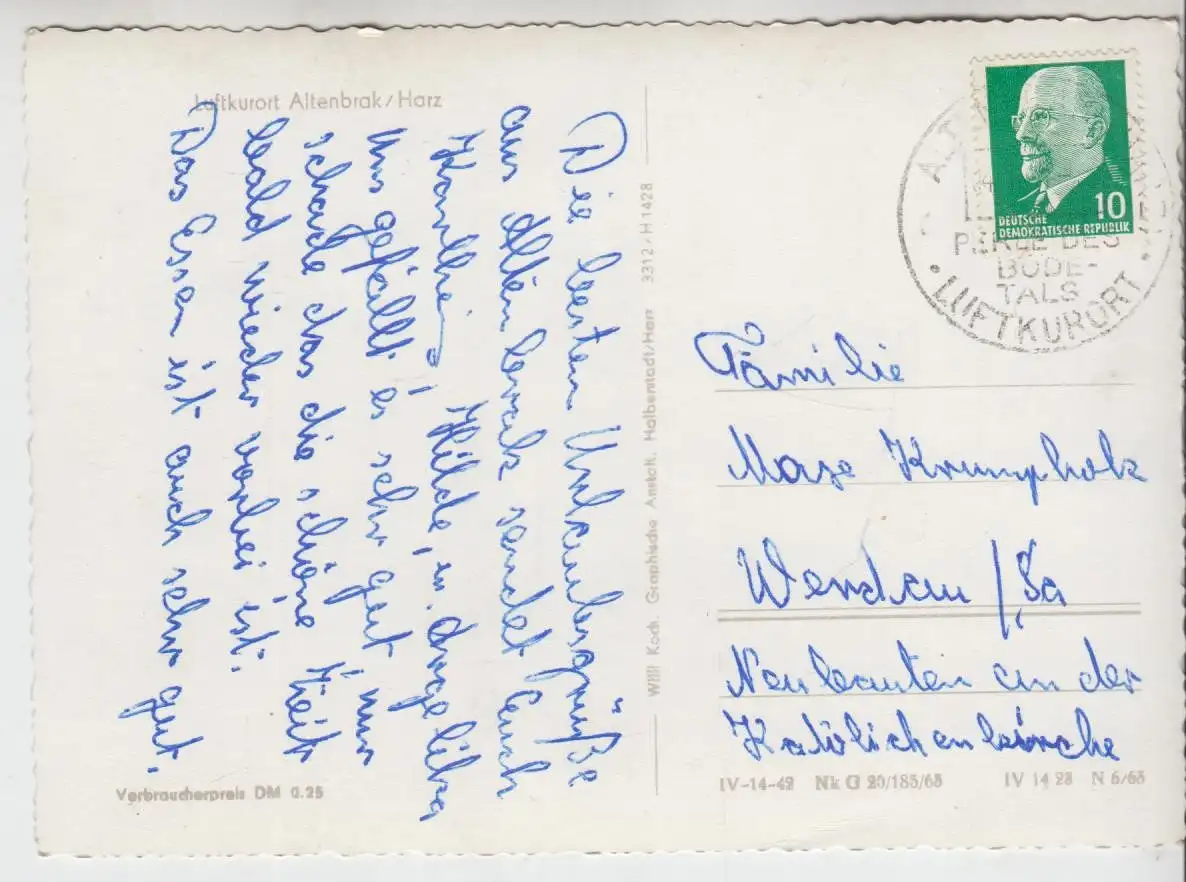 Luftkurort Altenbrak/Harz
Die besten Urlaubsgrüße
aus Altenbrak sendet Euch
Hilde, u. Angelika
uns gefällt es sehr gut, nur
schade das die schöne Zeit
bald wieder vorbei ist.
Das Essen ist auch sehr gut.
Verbraucherpreis DM 0.25
Willi Koch, Graphische Anstalt, Halberstadt/Harz 3312/H 1428
DEUTSCHE
DEMOKRATISCHE REPUBLIK
10
ALT
PERLE DES
BODE-
TALS
LUFTKURORT
Familie
Maxe Krumpholz
Werdau / Sa
Neubauten an der
Katolichenkirche
IV-14-42 Nk G 20/185/65 IV 14 28 N 6/65